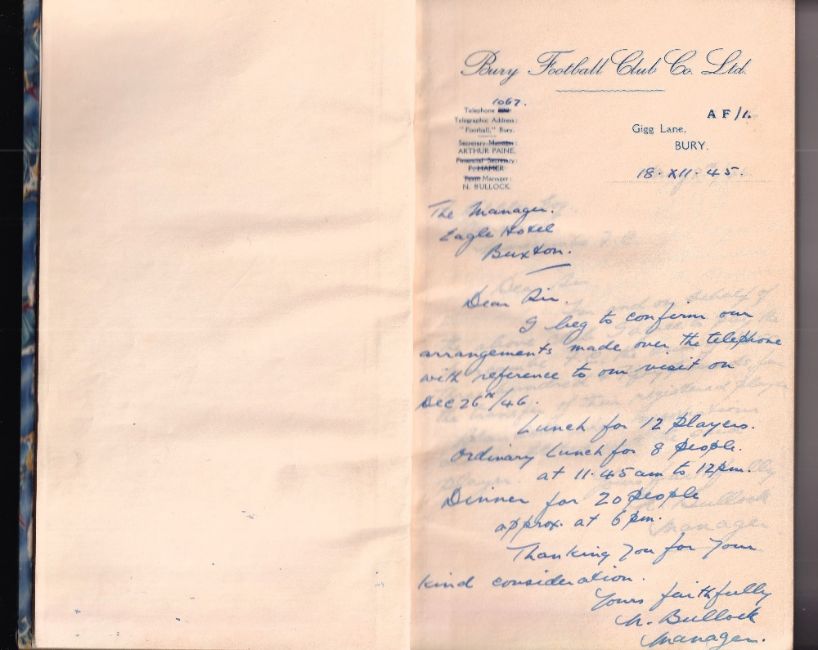 Bury Football Club Co. Ltd.
1067.
Telephone
Telegraphic Address:
"Football," Bury.
Secretary-Manager:
ARTHUR PAINE.
Financial Secretary:
P. HAMER
Team Manager:
N. BULLOCK.
A F/1.
Gigg Lane,
BURY.
18. XII. 45.
The Manager.
Eagle Hotel
Buxton.
Dear Sir.
I beg to confirm our
arrangements made over the telephone
with reference to our visit on
Dec 26th/46.
Lunch for 12 players.
Ordinary Lunch for 8 people.
at 11.45 am to 12 pm.
Dinner for 20 people
approx. at 6 pm.
Thanking you for your
kind consideration.
Yours faithfully
N. Bullock
Manager.